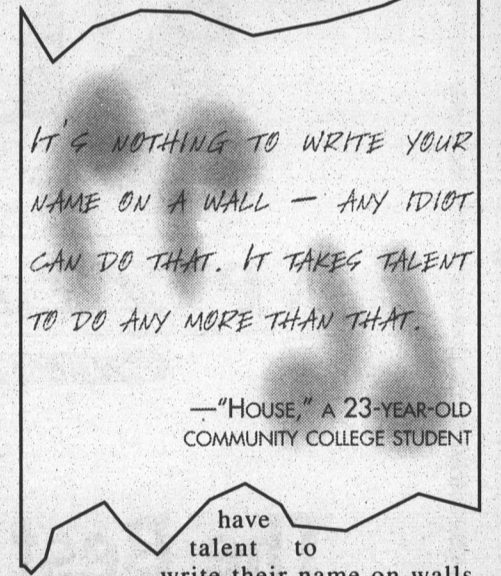 IT'S NOTHING TO WRITE YOUR
NAME ON A WALL — ANY IDIOT
CAN DO THAT. IT TAKES TALENT
TO DO ANY MORE THAN THAT.
—"HOUSE," A 23-YEAR-OLD
COMMUNITY COLLEGE STUDENT
have
talent to
write their name on walls